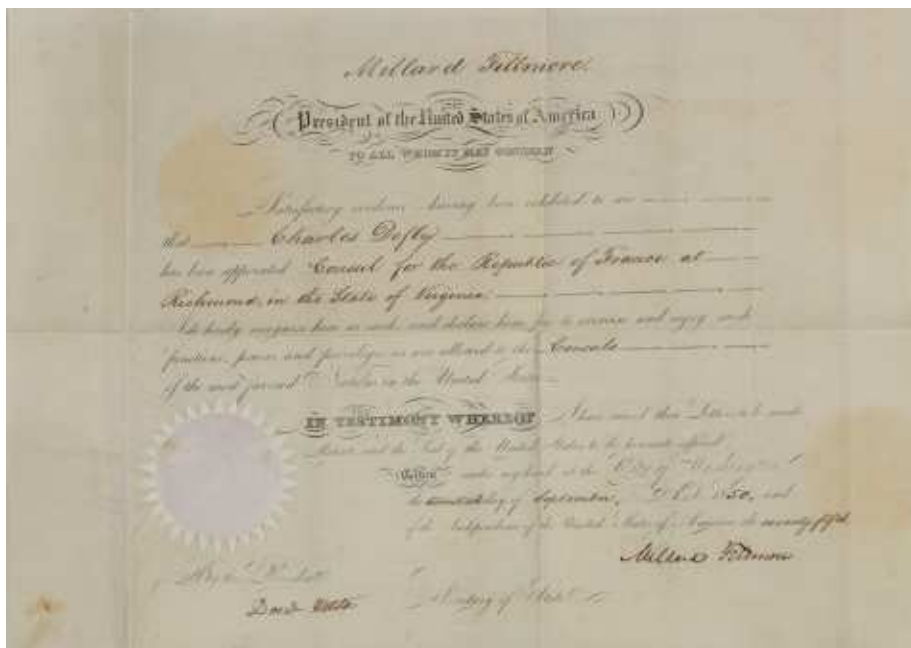 Millard Fillmore.
President of the United States of America
TO ALL WHOM IT MAY CONCERN
Satisfactory evidence having been exhibited to me
that Charles
has been appointed Consul for the Republic of France at
Richmond, in the State of Virginia.
I do hereby recognize him as such and declare him free to exercise and enjoy such
functions, powers and privileges as are allowed to the Consuls
of the most favored Nations in the United States.
IN TESTIMONY WHEREOF I have caused these Letters to be made
Patent and the Seal of the United States to be hereunto affixed
Given under my hand at the City of Washington
the day of September, A.D. 1850, and
of the Independence of the United States of America the seventy fifth.
Millard Fillmore
By the President
Secretary of State